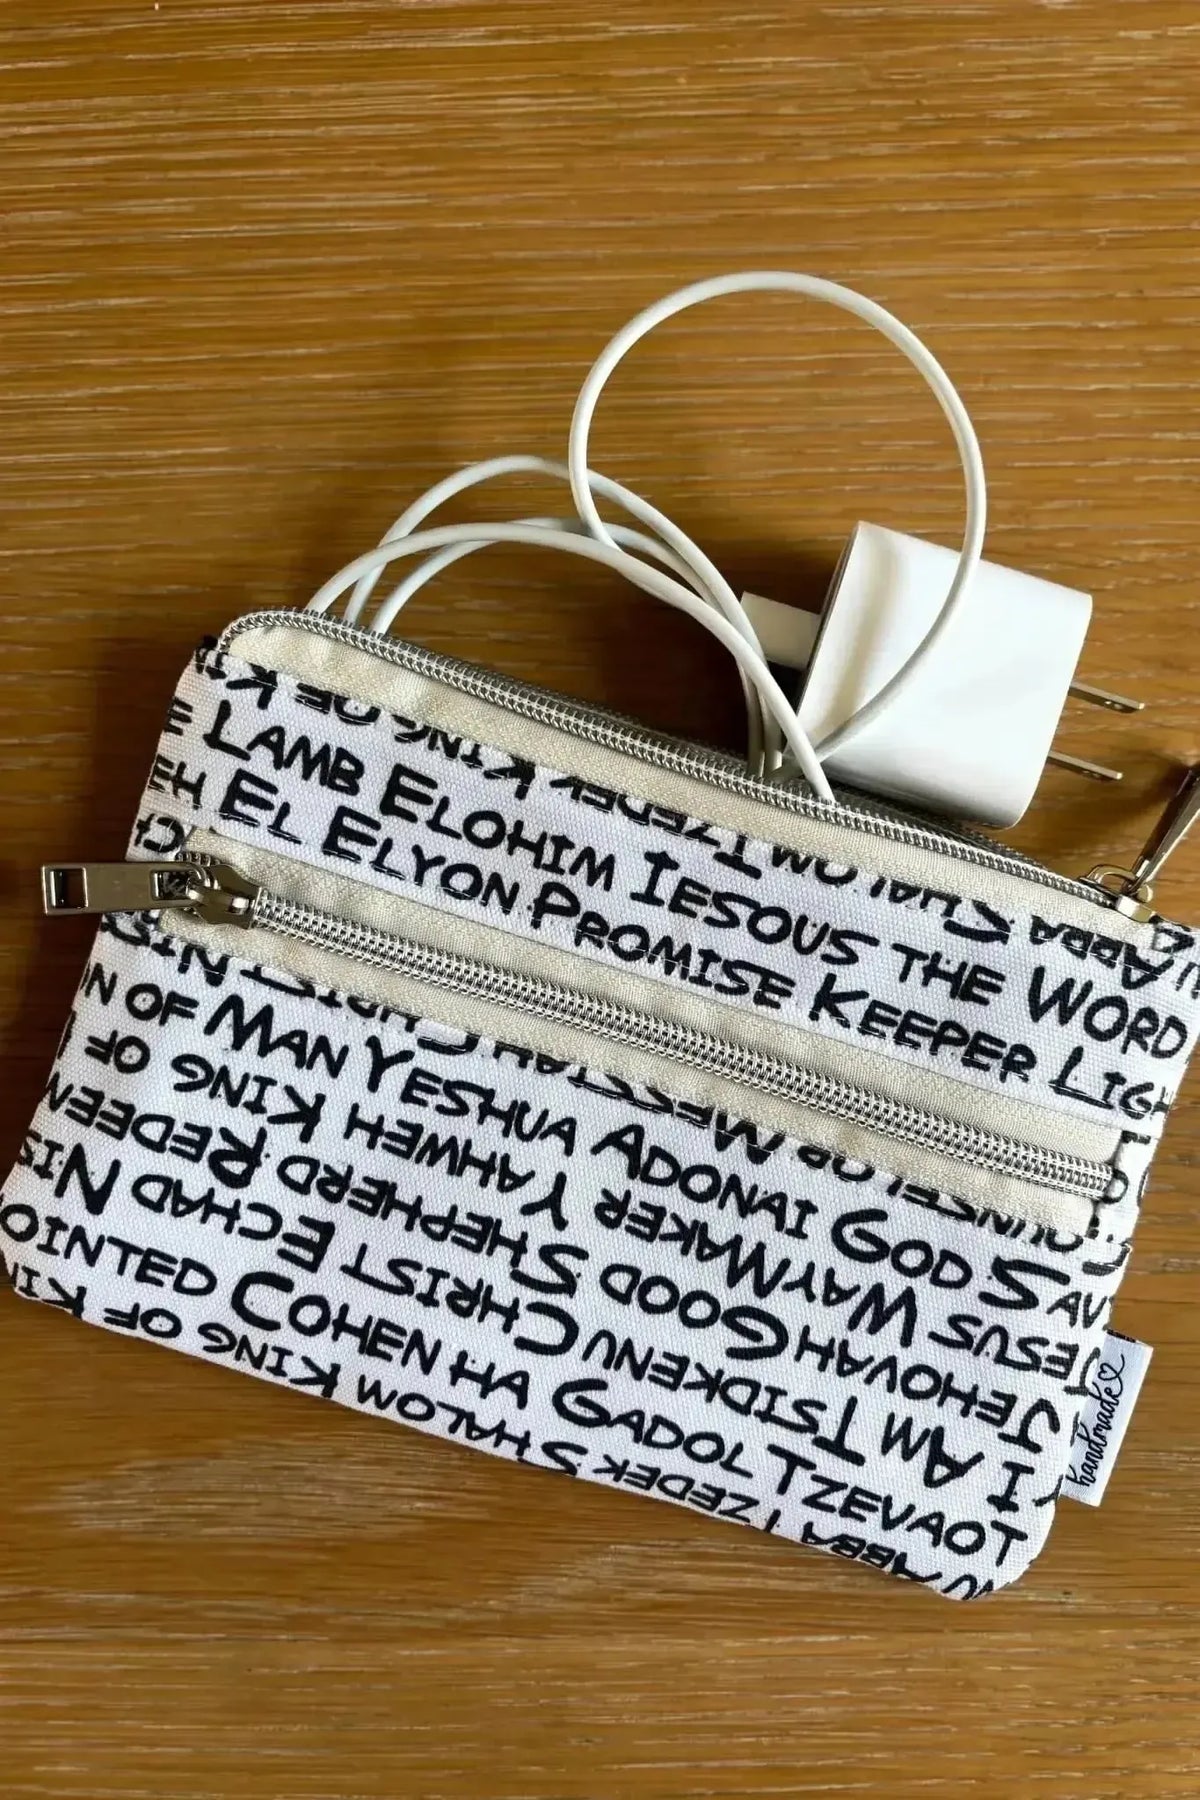 KING OF KING
TZEDEK
ABBA SHALOM
LAMB ELOHIM IESOUS THE WORD
EL ELYON PROMISE KEEPER LIGH
OF MAN YESHUA ADONAI GOD SAV
JESUS WAYMAKER YAHWEH KING OF
JEHOVAH GOOD SHEPHERD REDEEM
I AM TSIDKENU CHRIST ECHAD NIS
OINTED COHEN HA GADOL TZEVAOT
ABBA TZEDEK SHALOM KING OF KI
handmade